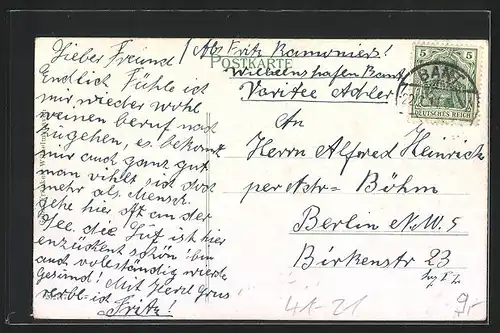 Lieber Freund!
Endlich Fühle ich
mir wieder wohl
meinen beruf nach
zugehen, es bekomt
mir auch ganz gut
man vihlt sich doch
mehr als Mensch.
gehe hier oft an der
See. die Luft ist hier
enzückent schön bin
auch vollständig wieder
Gesund! Mit Herzl Grus
verbl. ich
Fritz!
Abs Fritz
POSTKARTE
Wilhelmshafen Bant
Varitee Adler
5 5
DEUTSCHES REICH
BANT
An
Herrn Alfred Heinrich
per Adr= Böhm
Berlin N.W. 5
Birkenstr 23
41-21
9,-